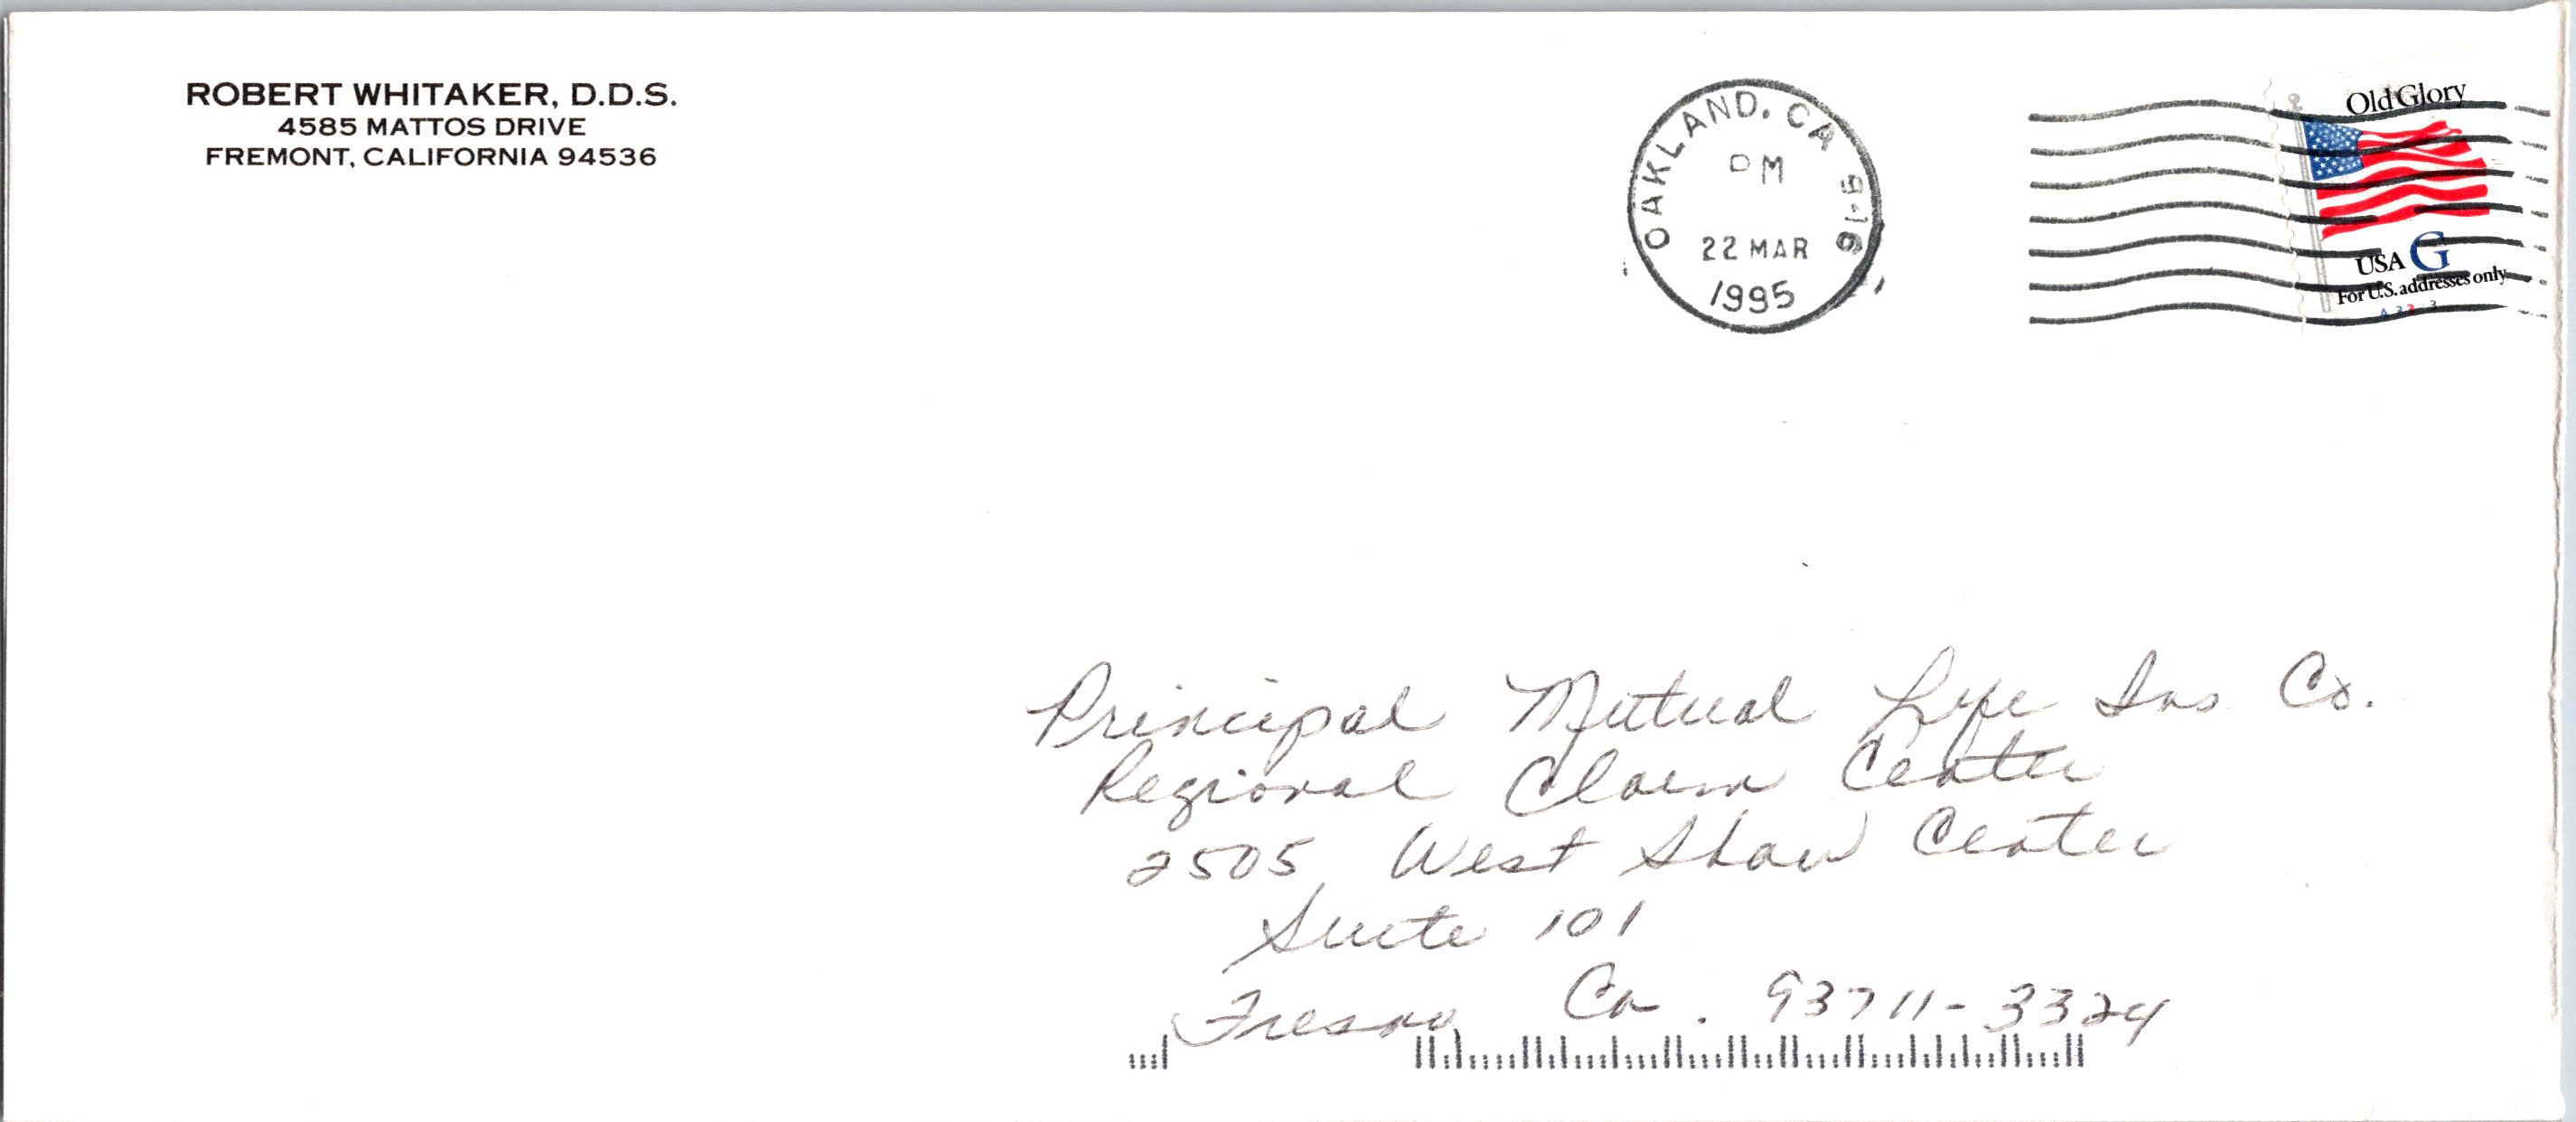 ROBERT WHITAKER, D.D.S.
4585 MATTOS DRIVE
FREMONT, CALIFORNIA 94536
OAKLAND, CA
PM
22 MAR
1995
Old Glory
USA G
For U.S. addresses only
Principal Mutual Life Ins Co.
Regional Claim Center
2505 West Shaw Center
Suite 101
Fresno Ca. 93711-3324